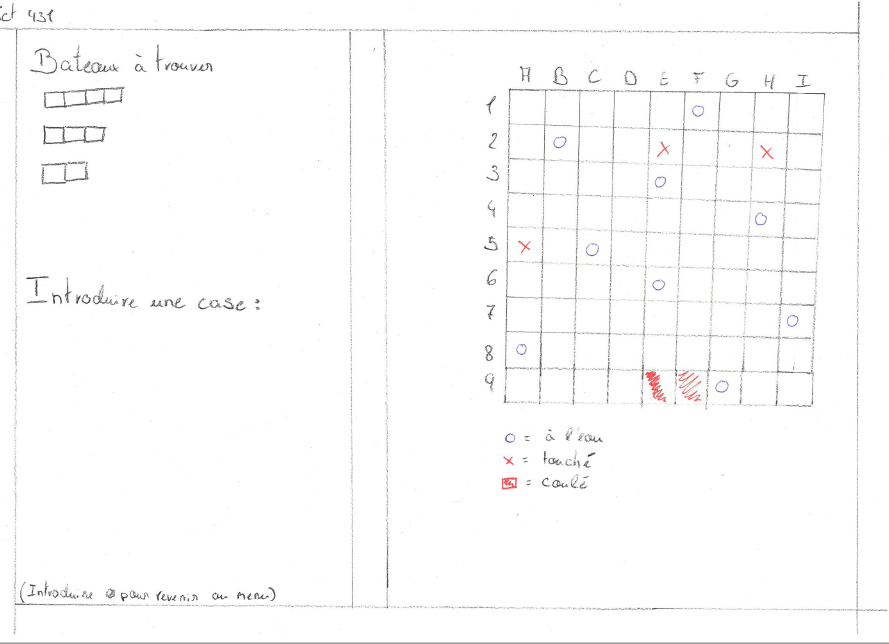 431
Bateaux à trouver
Introduire une case :
(Introduire pour revenir au menu)
A B C D E F G H I
1
2
3
4
5
6
7
8
9
O = à l'eau
X = touché
= coulé